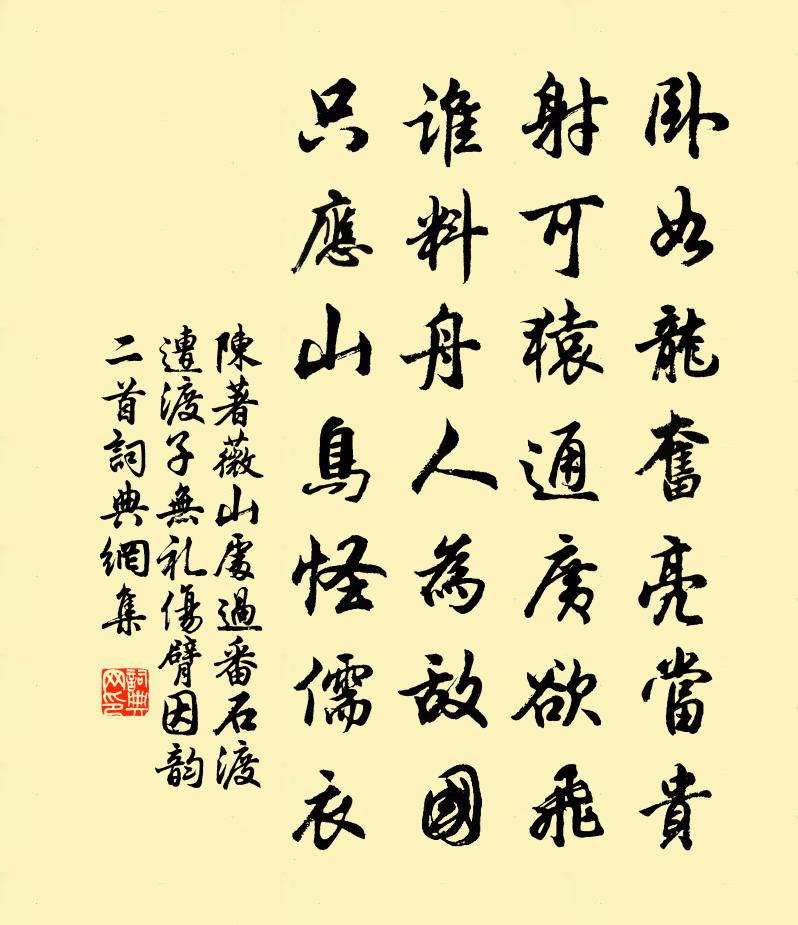 卧如龍奮亮當貴
射可猿通廣欲飛
誰料舟人為敵國
只應山鳥怪儒衣
陳著薇山處過番石渡
遭渡子無礼傷臂因韵
二首詞典網集
詞典
网印